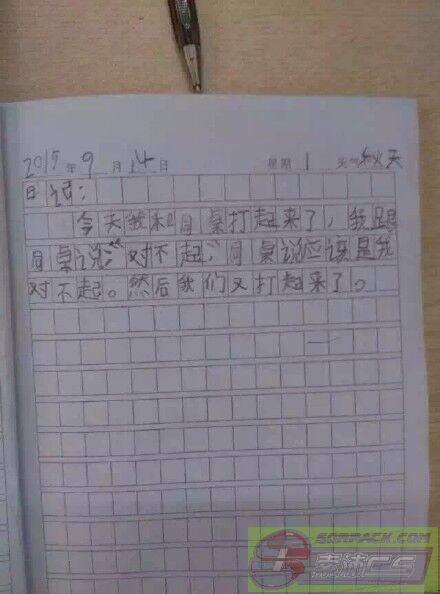 2015年9月14日 星期1 天气秋天
日记:
今天我和同桌打起来了,我跟
同桌说:“对不起,”同桌说应该是我
对不起。然后我们又打起来了。
SGRPACK.COM